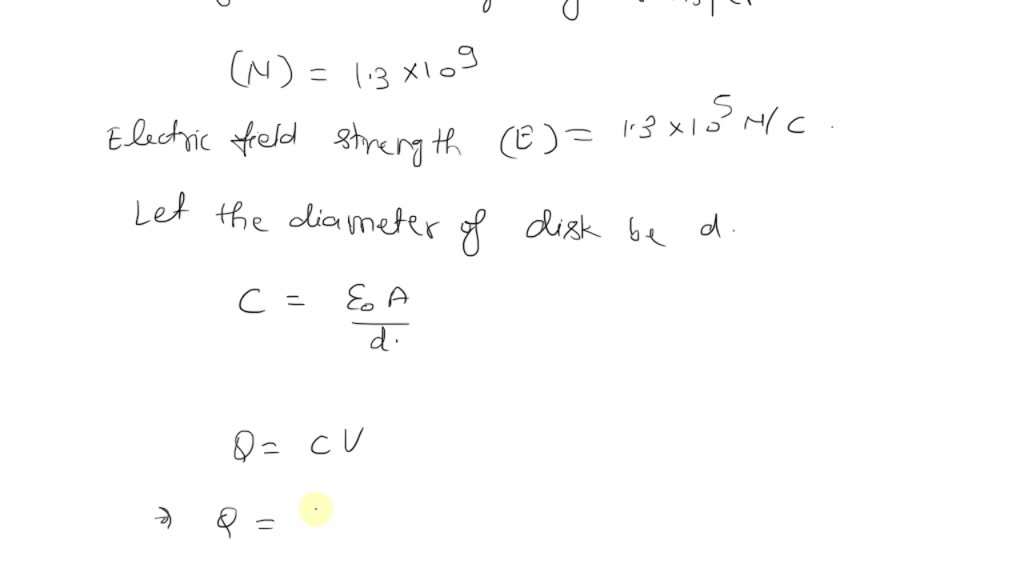 (N) = 1.3 × 10⁹
Electric field strength (E) = 1.3 × 10⁵ N/C .
Let the diameter of disk be d.
C = ε₀ A / d.
Q = C V
⇒ Q =